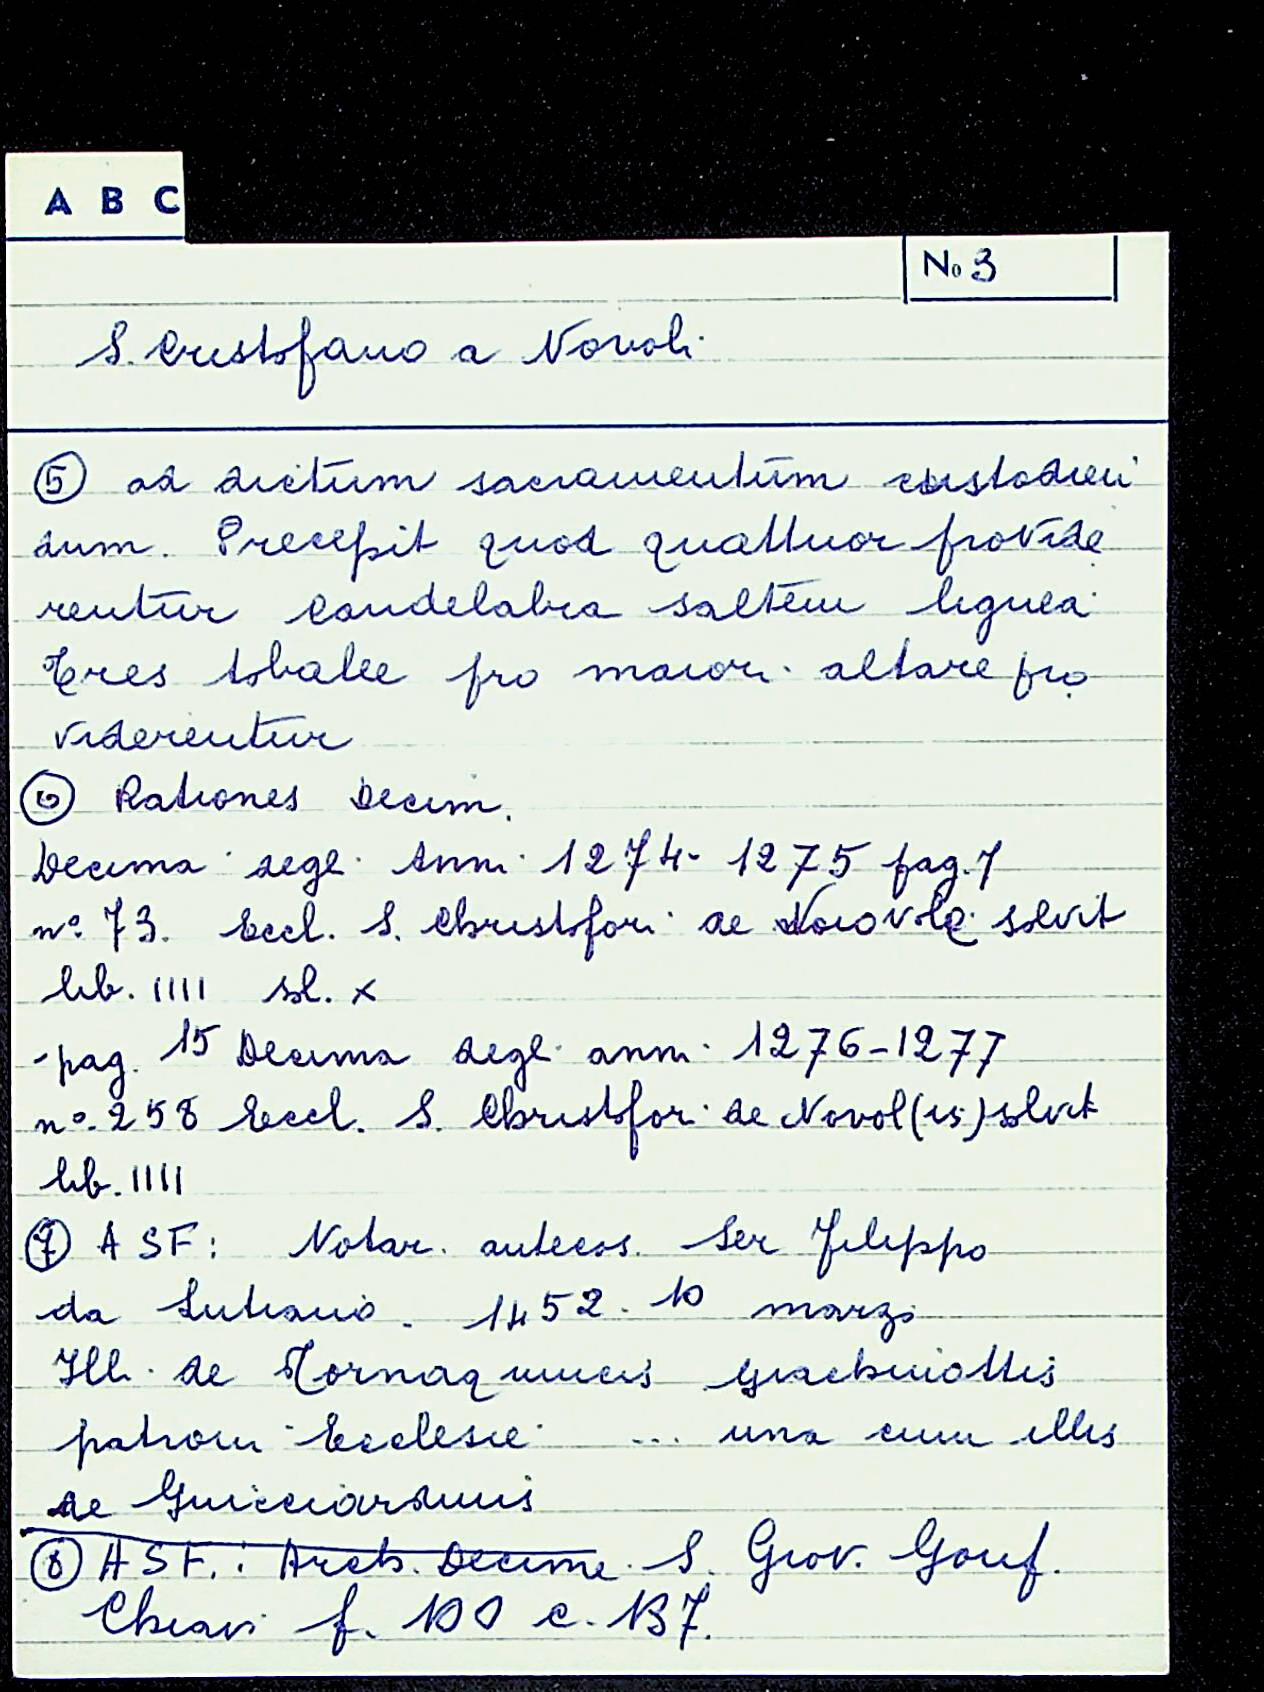 A B C
No 3
S. Cristofano a Novoli
⑤ ad dictum sacramentum custodien
dum. Precepit quod quattuor provide
rentur candelabra saltem lignea
Tres tobalee pro maiori altare pro
viderentur
⑥ Rationes Decim.
Decima degli Anni 1274-1275 pag. 7
n° 73. Eccl. S. Christofori de Novole solvit
lib. IIII sol. x
- pag. 15 Decima degli anni 1276-1277
n° 258 Eccl. S. Christofori de Novol(is) solvit
lib. IIII
⑦ ASF: Notar. antecos. Ser Filippo
da Lutiano. 1452. 10 marzo
Illi de Tornaquincis Giachinottis
patroni Ecclesie ... una cum illis
de Guicciardinis
⑧ ASF.: Arch. Decime S. Giov. Gonf.
Chiavi f. 100 c. 137.